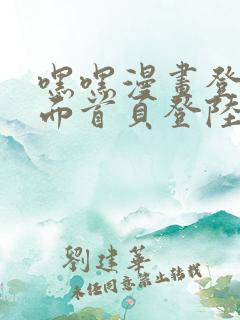 嘿嘿漫畫登
而首頁登陸
劉建華
未經同意禁止轉載